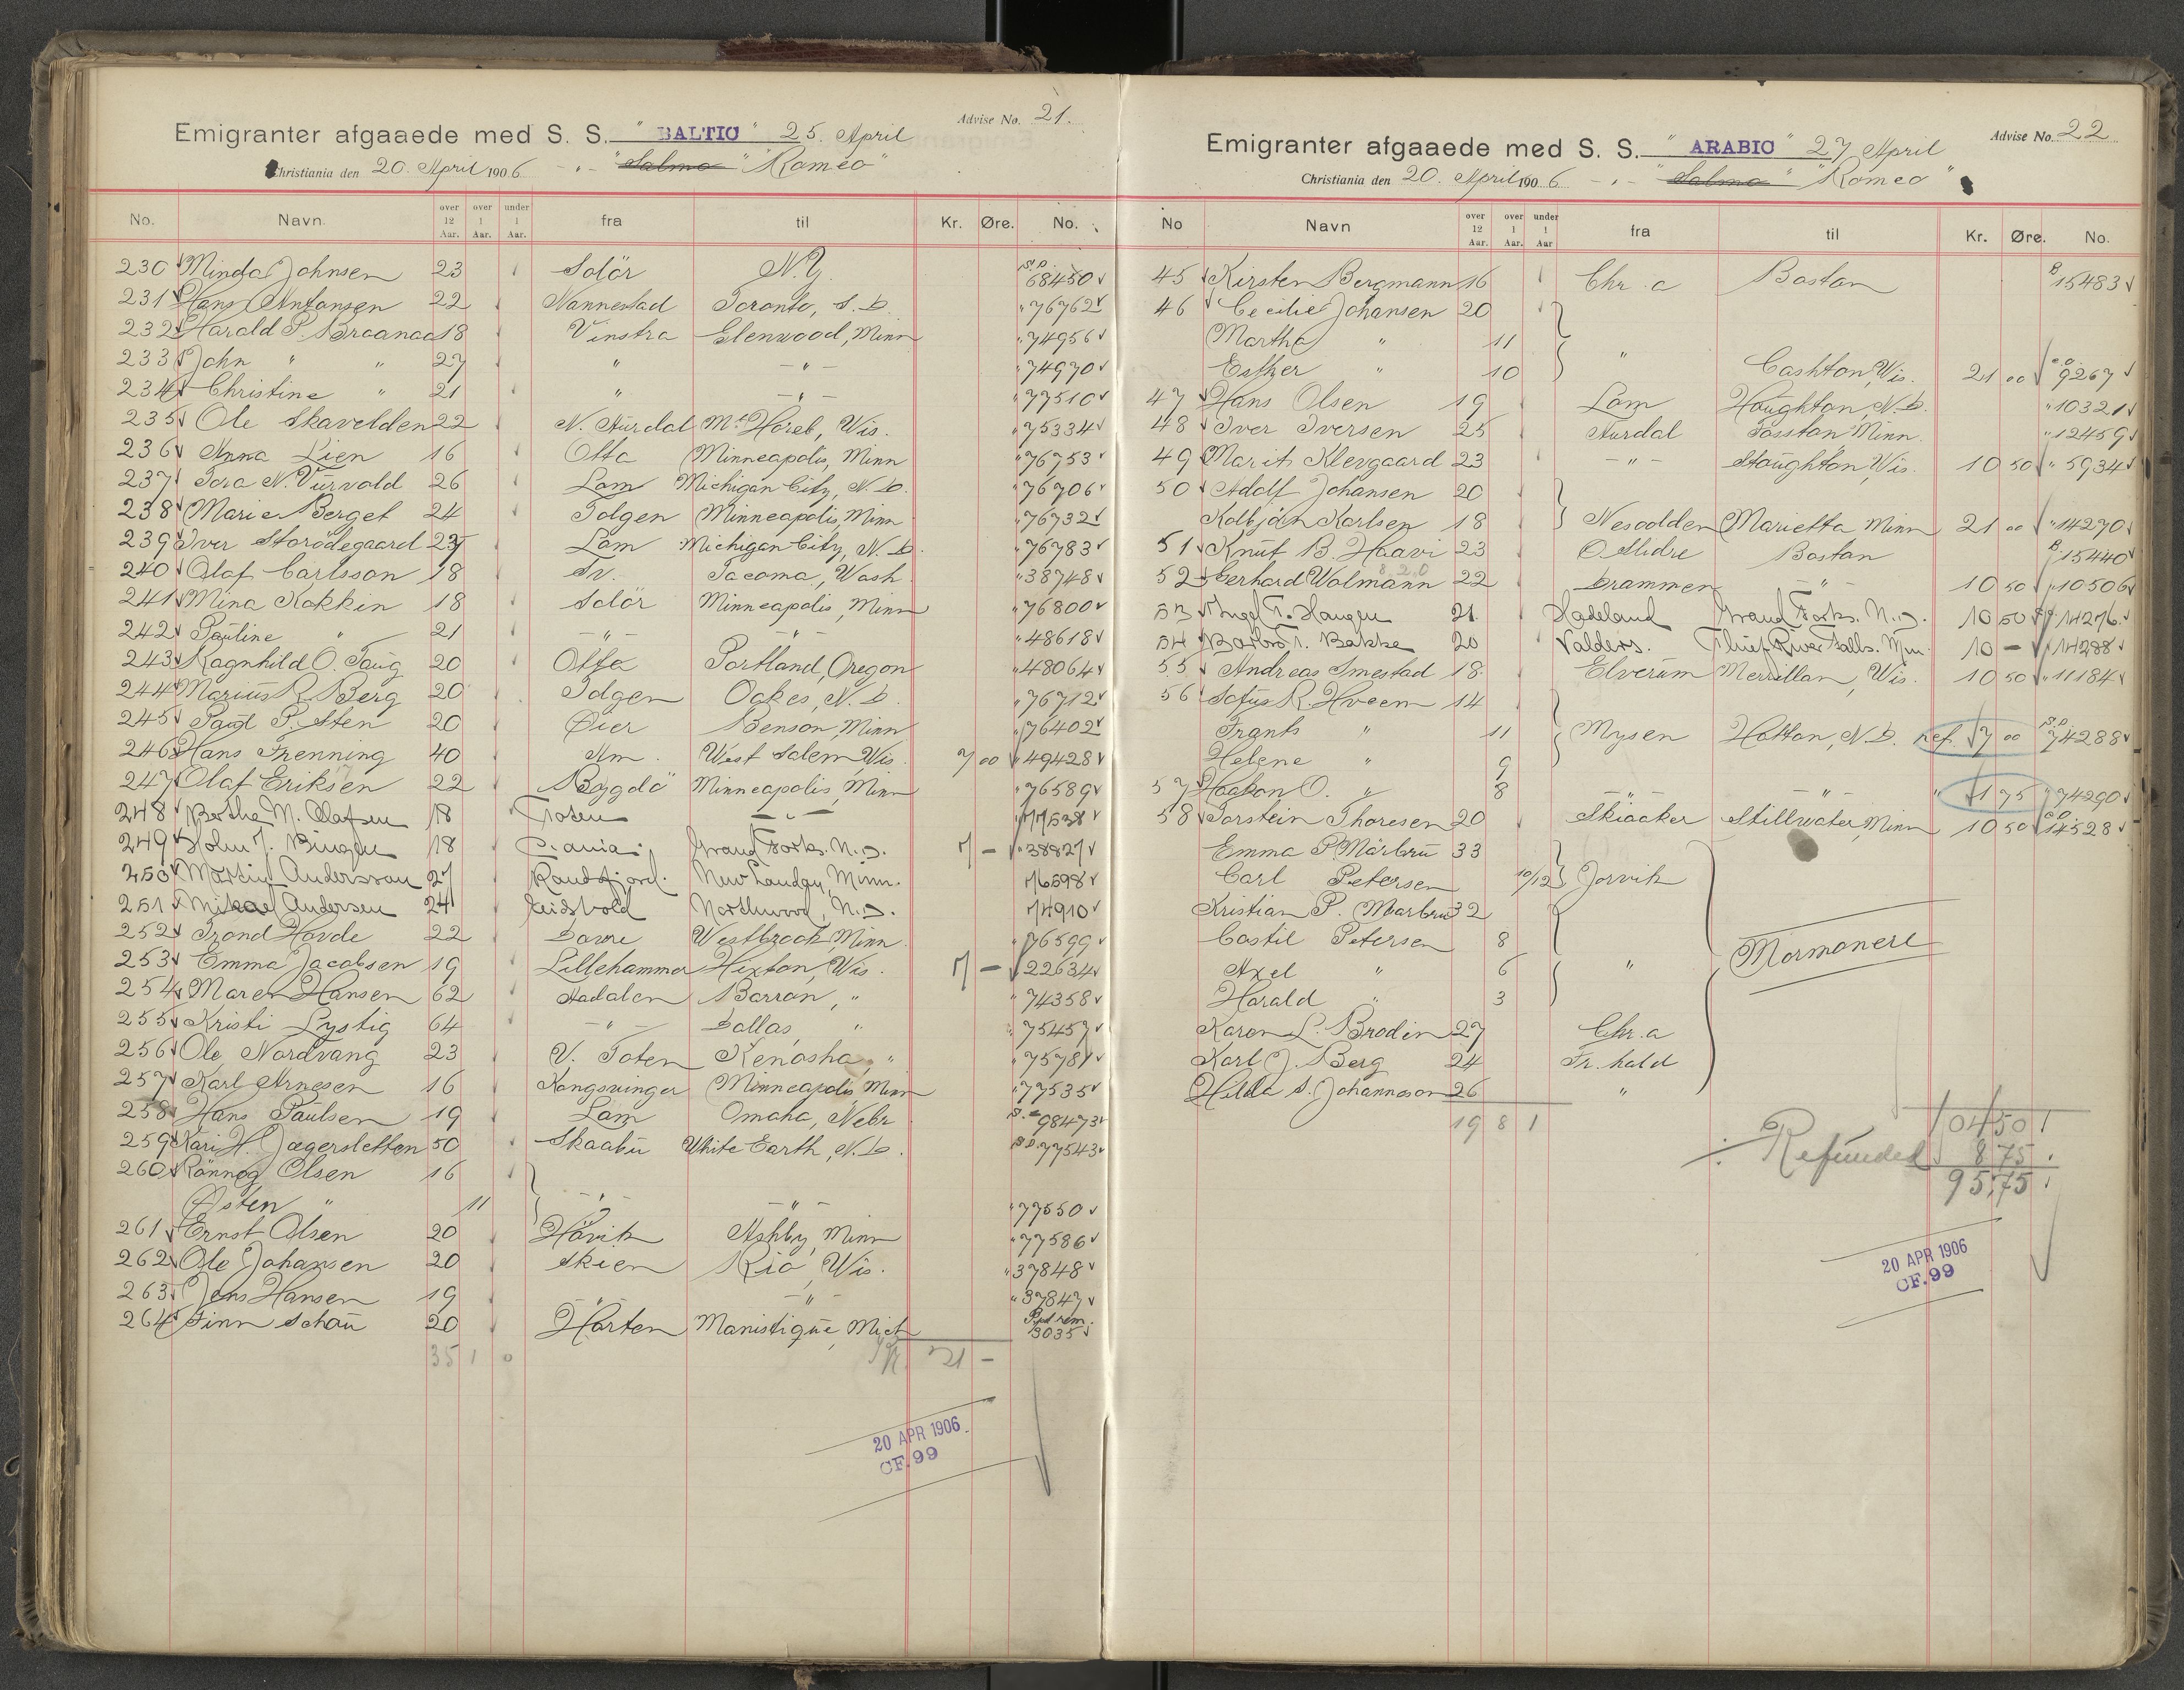 Advise No. 21.
Emigranter afgaaede med S. S. "BALTIC" 25. April
Christiania den 20. April 1906 -"- "Salmo" "Romeo"
No. Navn. over 12 Aar. over 1 Aar. under 1 Aar. fra til Kr. Øre. No.
230 Minda Johnsen 23 Solör N.Y. S.O. 68450
231 Hans Antonsen 22 Nannestad Toronto, S.D. " 76762
232 Harald P. Braanaa 18 Vinstra Glenwood, Minn " 74956
233 John " " 27 " -"- " 74970
234 Christine " 21 " -"- " 77510
235 Ole Skavelden 22 N. Aurdal Mt Horeb, Wis. " 75334
236 Anna Lien 16 Otta Minneapolis, Minn " 76753
237 Tora N. Vurvold 26 Lom Michigan City, N.D. " 76706
238 Marie Berget 24 Tolgen Minneapolis, Minn " 76732
239 Iver Storödegaard 27 Lom Michigan City, N.D. " 76783
240 Olaf Carlsson 18 Sv. Tacoma, Wash " 38748
241 Mina Kokkin 18 Solör Minneapolis, Minn " 76800
242 Pauline " 21 -"- -"- " 48618
243 Ragnhild O. Taug 20 Otta Portland, Oregon " 48064
244 Marius R. Berg 20 Tolgen Oakes, N.D. " 76712
245 Paul P. Sten 20 Øier Benson, Minn " 76402
246 Hans Frenning 40 Am. West Salem, Wis 7 00 " 49428
247 Olaf Eriksen 22 Bygdö Minneapolis, Minn " 76589
248 Berthe M. Olafsen 18 Toten -"- " 77538
249 Holm J. Bingen 18 C.ania. Grand Forks. N.D. 7 - " 38827
250 Martin Anderssen 27 Randsfjord. New London, Minn. 76598
251 Mikael Andersen 24 Eidsvold Northwood, N.D. 74910
252 Trond Hovde 22 Dovre Westbrook, Minn " 76599
253 Emma Jacobsen 19 Lillehammer Hixton, Wis. 7 - 22634
254 Maren Hansen 62 Aadalen Barron, " " 74358
255 Kristi Lystig 64 -"- Dallas, " " 75457
256 Ole Nordvang 23 V. Toten Kenosha, " " 75781
257 Karl Arnesen 16 Kongsvinger Minneapolis, Minn " 77535
258 Hans Paulsen 19 Lom Omaha, Nebr 98473
259 Kari H. Jægersletten 50 Skaabu White Earth, N.D. S.O. 77543
260 Rönnog Olsen 16
Østen " 11 -"- -"- " 77550
261 Ernst Olsen 20 Hövik Ashby, Minn " 77586
262 Ole Johansen 20 Skien Rio, Wis. " 37848
263 Jens Hansen 19 -"- -"- " 37847
264 Finn Schau 20 Horten Manistique, Mich 3035
35 1 0 21 -
20 APR 1906
CF. 99
Advise No. 22
Emigranter afgaaede med S. S. "ARABIC" 27 April
Christiania den 20. April 1906 -"- "Salmo" "Romeo"
No Navn over 12 Aar. over 1 Aar. under 1 Aar fra til Kr. Øre. No.
45 Kirsten Bergmann 16 Chr.a Boston B 15483
46 Cecilie Johansen 20
Martha " 11
Esther " 10 " Cashton, Wis. 21 00 9267
47 Hans Olsen 19 Lom Houghton, N.D. " 10321
48 Iver Iversen 25 Aurdal Fosston Minn. " 12459
49 Marit Klevgaard 23 -"- Stoughton, Wis. 10 50 " 5934
50 Adolf Johansen 20
Kolbjön Karlsen 18 Nesodden Marietta Minn 21 00 " 14270
51 Knut B. Haavi 23 O. Slidre Boston B 15440
52 Gerhard Wolmann 22 Drammen -"- 10 50 " 10506
53 Ingel T. Haugen 21 Hadeland Grand Forks. N.D. 10 50 14276
54 Barbro T. Bakke 20 Valders. Thief River Falls. Min. 10 - 14288
55 Andreas Smestad 18 Elverum Merrillan, Wis. 10 50 " 11184
56 Sofus R. Hveem 14
Frants " 11 Mysen Hatton, N.D. Ref. 7 00 S.O. 74288
Helene " 9
57 Haakon O. " 8 -"- -"- " 1 75 " 74290
58 Torstein Thoresen 20 Skiaaker Stillwater, Minn 10 50 14528
Emma P. Marbru 33
Carl Petersen 10/12 Jorvik
Kristian P. Marbru 32
Castil Petersen 8 "
Axel " 6 "
Harald " 3
Mormonere
Karen L. Brodin 27 Chr.a
Karl J. Berg 24 Fr. hald
Hilda S. Johannson 26 "
19 8 1
104 50
÷ Refunded 8 75
95,75
20 APR 1906
CF. 99